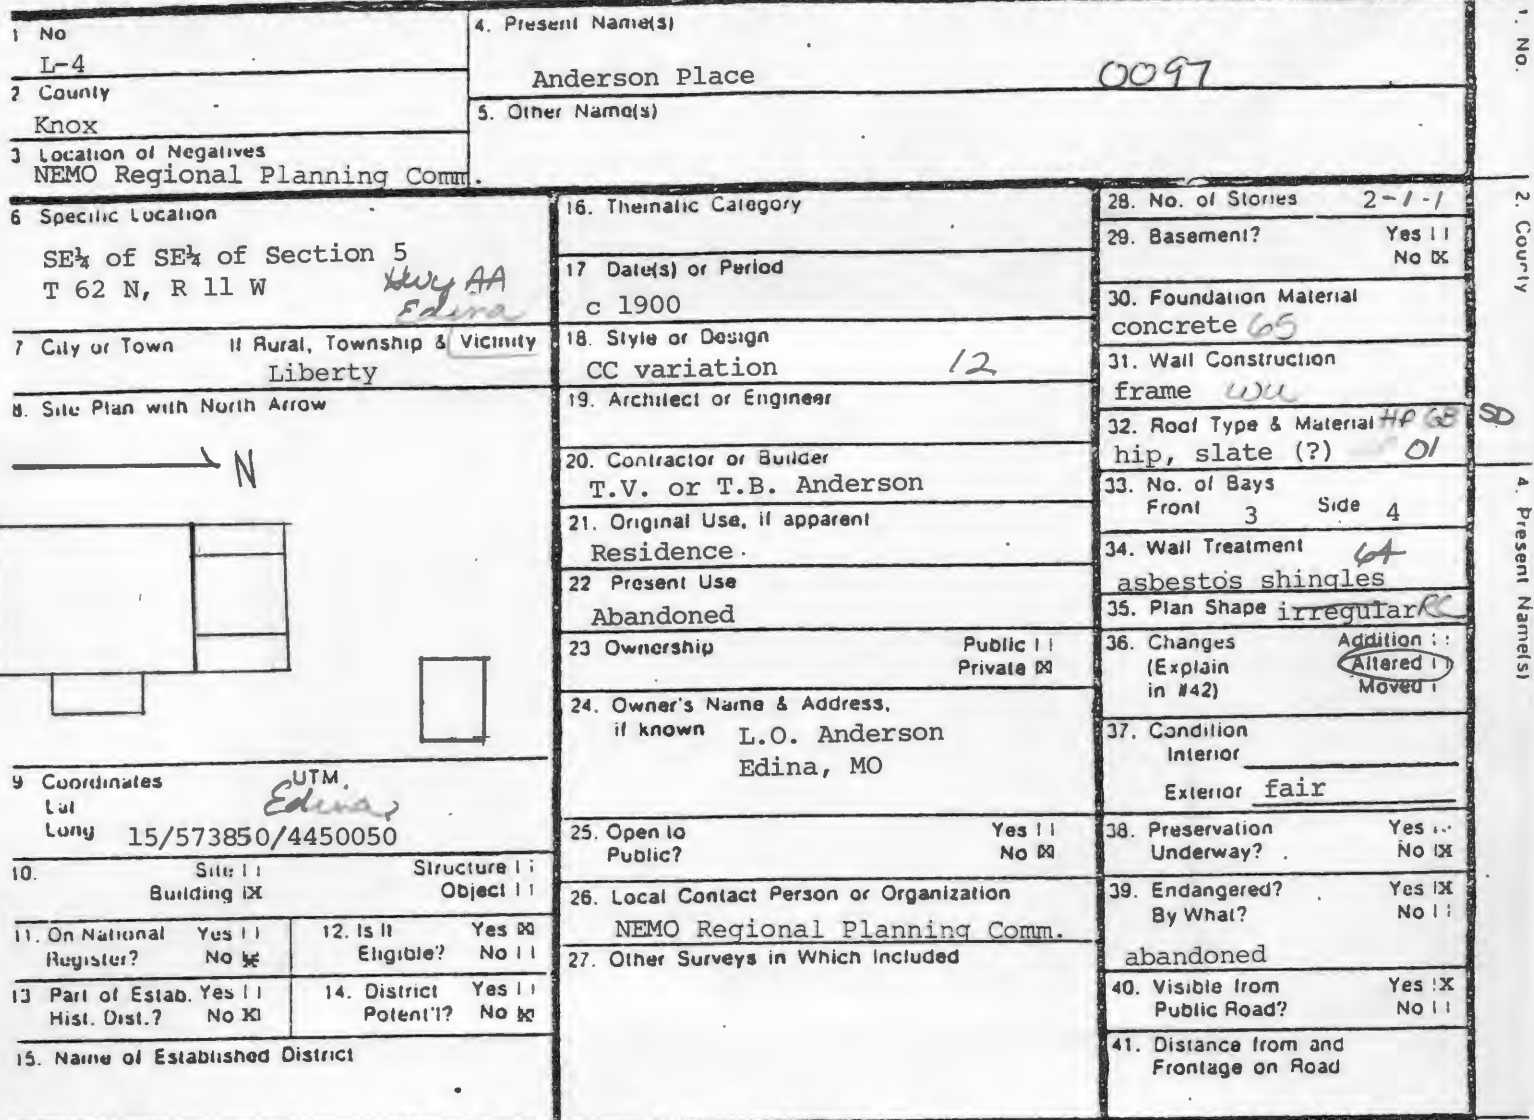 1 No
L-4
2 County
Knox
3 Location of Negatives
NEMO Regional Planning Comm.
4. Present Name(s)
Anderson Place 0097
5. Other Name(s)
6 Specific Location
SE¼ of SE¼ of Section 5
T 62 N, R 11 W Hwy AA
Edina
7 City or Town If Rural, Township & Vicinity
Liberty
8. Site Plan with North Arrow
N
9 Coordinates UTM
Lat Edina,
Long 15/573850/4450050
10. Site | | Structure | |
Building |X Object | |
11. On National Yes | |
Register? No |X|
12. Is It Yes |X|
Eligible? No | |
13 Part of Estab. Yes | |
Hist. Dist.? No |X|
14. District Yes | |
Potent'l? No |X|
15. Name of Established District
16. Thematic Category
17 Date(s) or Period
c 1900
18. Style or Design
CC variation 12
19. Architect or Engineer
20. Contractor or Builder
T.V. or T.B. Anderson
21. Original Use, if apparent
Residence
22 Present Use
Abandoned
23 Ownership Public | |
Private |X|
24. Owner's Name & Address,
if known L.O. Anderson
Edina, MO
25. Open to Yes | |
Public? No |X|
26. Local Contact Person or Organization
NEMO Regional Planning Comm.
27. Other Surveys in Which Included
28. No. of Stories 2-1-1
29. Basement? Yes | |
No |X
30. Foundation Material
concrete 65
31. Wall Construction
frame WU
32. Roof Type & Material HP GB
hip, slate (?) 01
33. No. of Bays
Front 3 Side 4
34. Wall Treatment 64
asbestos shingles
35. Plan Shape irregular RC
36. Changes Addition | |
(Explain Altered | |
in #42) Moved |
37. Condition
Interior
Exterior fair
38. Preservation Yes
Underway? No |X
39. Endangered? Yes |X
By What? No | |
abandoned
40. Visible from Yes |X
Public Road? No | |
41. Distance from and
Frontage on Road
1. No.
2. County
SD
4. Present Name(s)